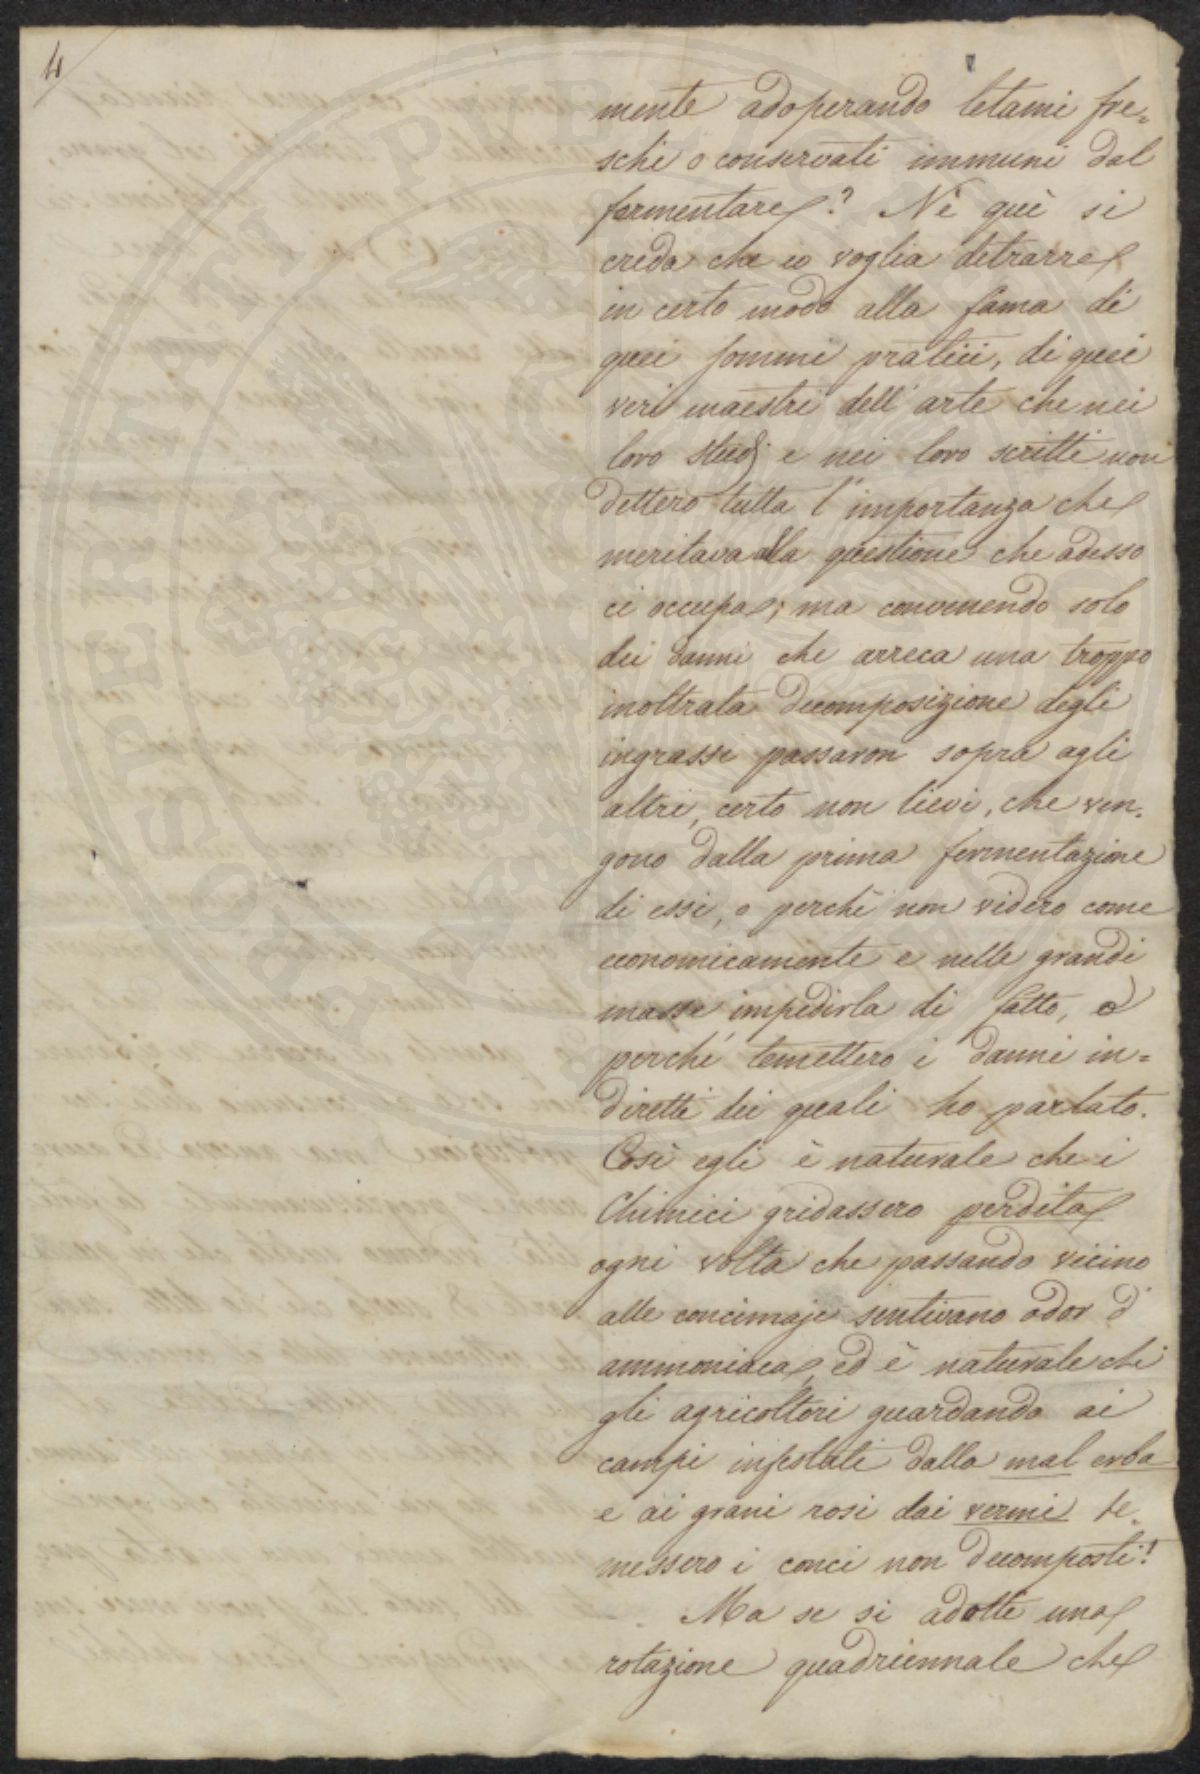 4
mente adoperando letami fre=
schi o conservati immuni dal
fermentare? Nè quì si
creda che io voglia detrarre
in certo modo alla fama di
quei sommi pratici, di quei
veri maestri dell'arte che nei
loro studj e nei loro scritti non
dettero tutta l'importanza che
meritava alla questione che adesso
ci occupa; ma convenendo solo
dei danni che arreca una troppo
inoltrata decomposizione degli
ingrassi passaron sopra agli
altri, certo non lievi, che ven=
gono dalla prima fermentazione
di essi, o perchè non videro come
economicamente e nelle grandi
masse impedirla di fatto, o
perchè temettero i danni in=
diretti dei quali ho parlato.
Così egli è naturale che i
Chimici gridassero perdita
ogni volta che passando vicino
alle concimaje sentivano odor d'
ammoniaca, ed è naturale che
gli agricoltori guardando ai
campi infestati dalla mal erba
e ai grani rosi dai vermi te=
messero i conci non decomposti!
Ma se si adotti una
rotazione quadriennale che
PROSPERITATI PVBLICAE